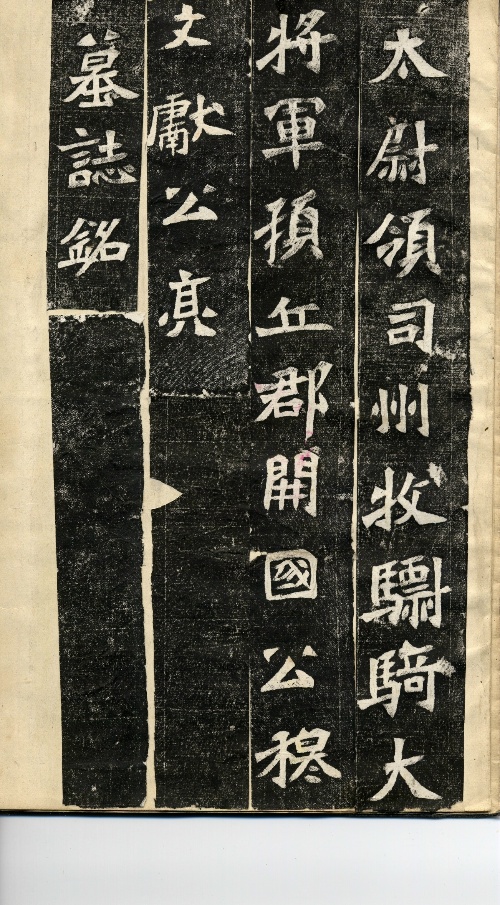 太尉領司州牧驃騎大
將軍頓丘郡開國公穆
文獻公亮
墓誌銘